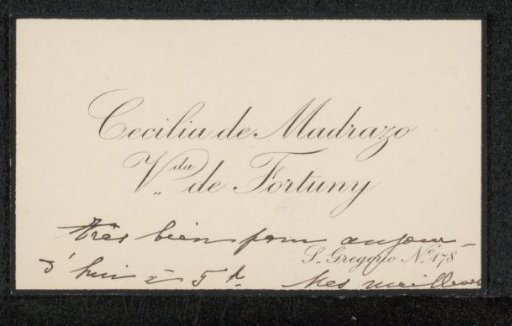 Cecilia de Madrazo
V.da de Fortuny
très bien pour aujour-
S. Gregorio No. 178
d'hui à 5 h. Mes meilleurs